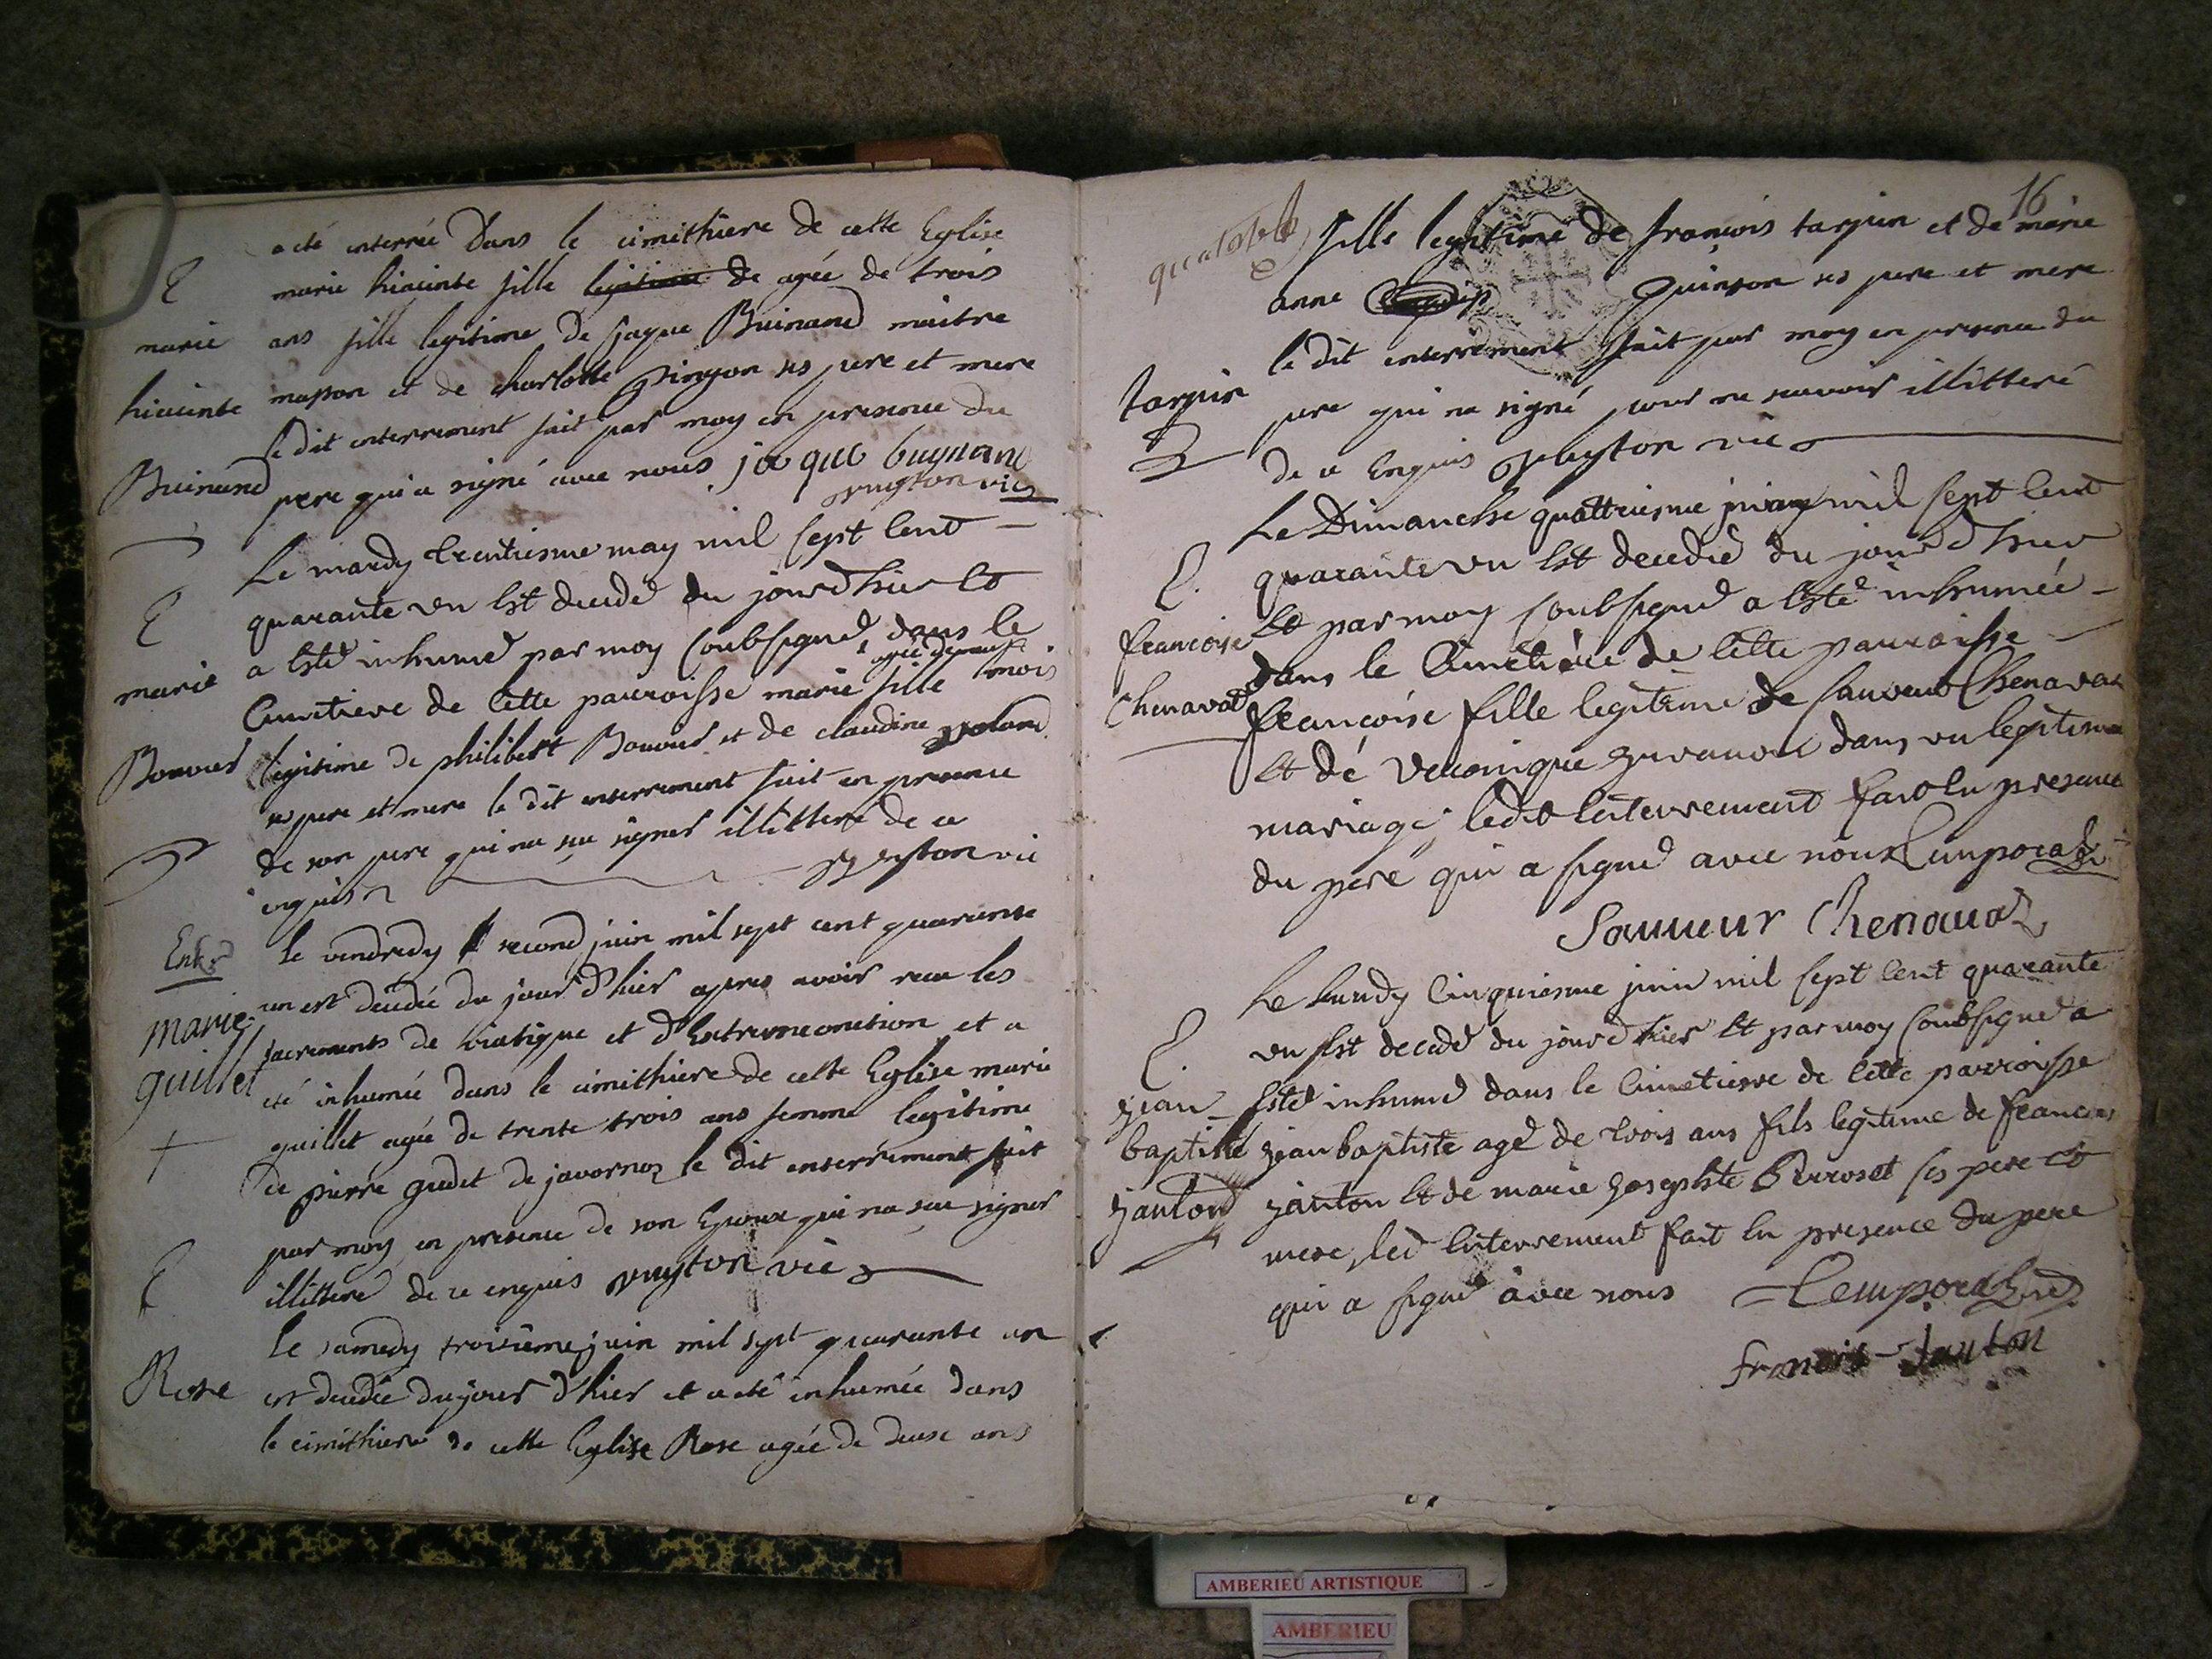 a eté enterrée Dans le cimithiere de cette Eglise
E
marie hiacinte fille legitime de agée de trois
marie
ans fille legitime De jaque Buinand maitre
hiacinte
masson et de charlotte pinson ses pere et mere
le dit enterrement fait par moy en presence du
Buinand
pere qui a signé avec nous jaque buynand
vic
Le mardy trentiesme may mil sept cent
E
quarante un Est decedé du jour d'hier Et
a Esté inhumé par moy soubsigné dans le
marie
Cimetiere de Cette parroisse marie fille
agée de neuf mois
Bouvier
legitime de philibert Bouvier et de claudine
ses pere et mere le dit enterrement fait en presence
de son pere qui na sçu signer illitteré de ce
enquis
vic
Enter
le vendredy second juin mil sept cent quarante
un est decedée du jour d'hier apres avoir receu les
marie
sacrements de viatique et d'Extremeonction et a
guillet
été inhumée dans le cimithiere de cette Eglise marie
guillet agée de trente trois ans femme legitime
de pierre gudet de javornoz le dit enterrement fait
par moy en presence de son Epoux qui na sçu signer
E
illitteré de ce enquis vic
le samedy troisieme juin mil sept quarante un
Rose
est decedée du jour d'hier et a eté inhumée dans
le cimithiere de cette Eglise Rose agée de deuse ans
16
fille legitime de françois tarpin et de marie
anne Quinson ses pere et mere
tarpin
le dit enterrement fait par moy en presence du
pere qui na signé pour ne savoir illitteré
de ce Enquis vic
Le Dimanche quattriesme juin mil sept Cent
E.
quarante un Est decedée du jour d hier
Et par moy soubsigné a Esté inhumée
francoise
dans le Cimetiere de Cette parroisse
Chenavat
francoise fille legitime de sauveur Chenavat
Et de Veronique dans un legitime
mariage, ledit Enterrement fait En presence
du pere qui a signé avec nous Temporal
Sauveur Chenavat
Le Lundy Cinquiesme juin mil sept Cent quarante
E.
un Est decedé du jour d hier Et par moy soubsigné a
jean
Esté inhumé dans le Cimetiere de Cette parroisse
baptiste
jean baptiste agé de trois ans fils legitime de francois
janton
janton Et de marie josephte Perroset ses pere Et
mere, led Enterrement fait En presence du pere
qui a signé avec nous Temporal
francois Janton
AMBERIEU ARTISTIQUE
AMBERIEU